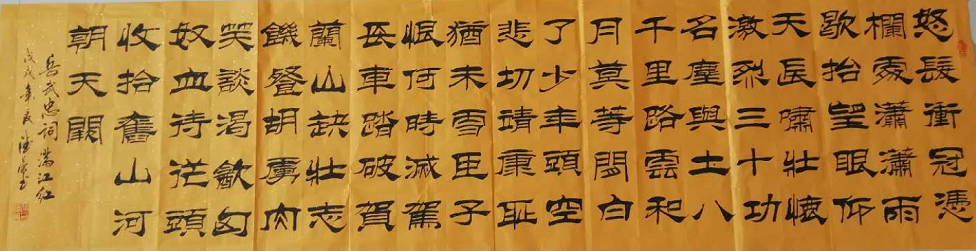 怒髮衝冠憑
欄處瀟瀟雨
歇抬望眼仰
天長嘯壯懷
激烈三十功
名塵與土八
千里路雲和
月莫等閒白
了少年頭空
悲切靖康恥
猶未雪臣子
恨何時滅駕
長車踏破賀
蘭山缺壯志
饑餐胡虜肉
笑談渴飲匈
奴血待從頭
收拾舊山河
朝天闕
岳武忠詞滿江红
戊戌年夏